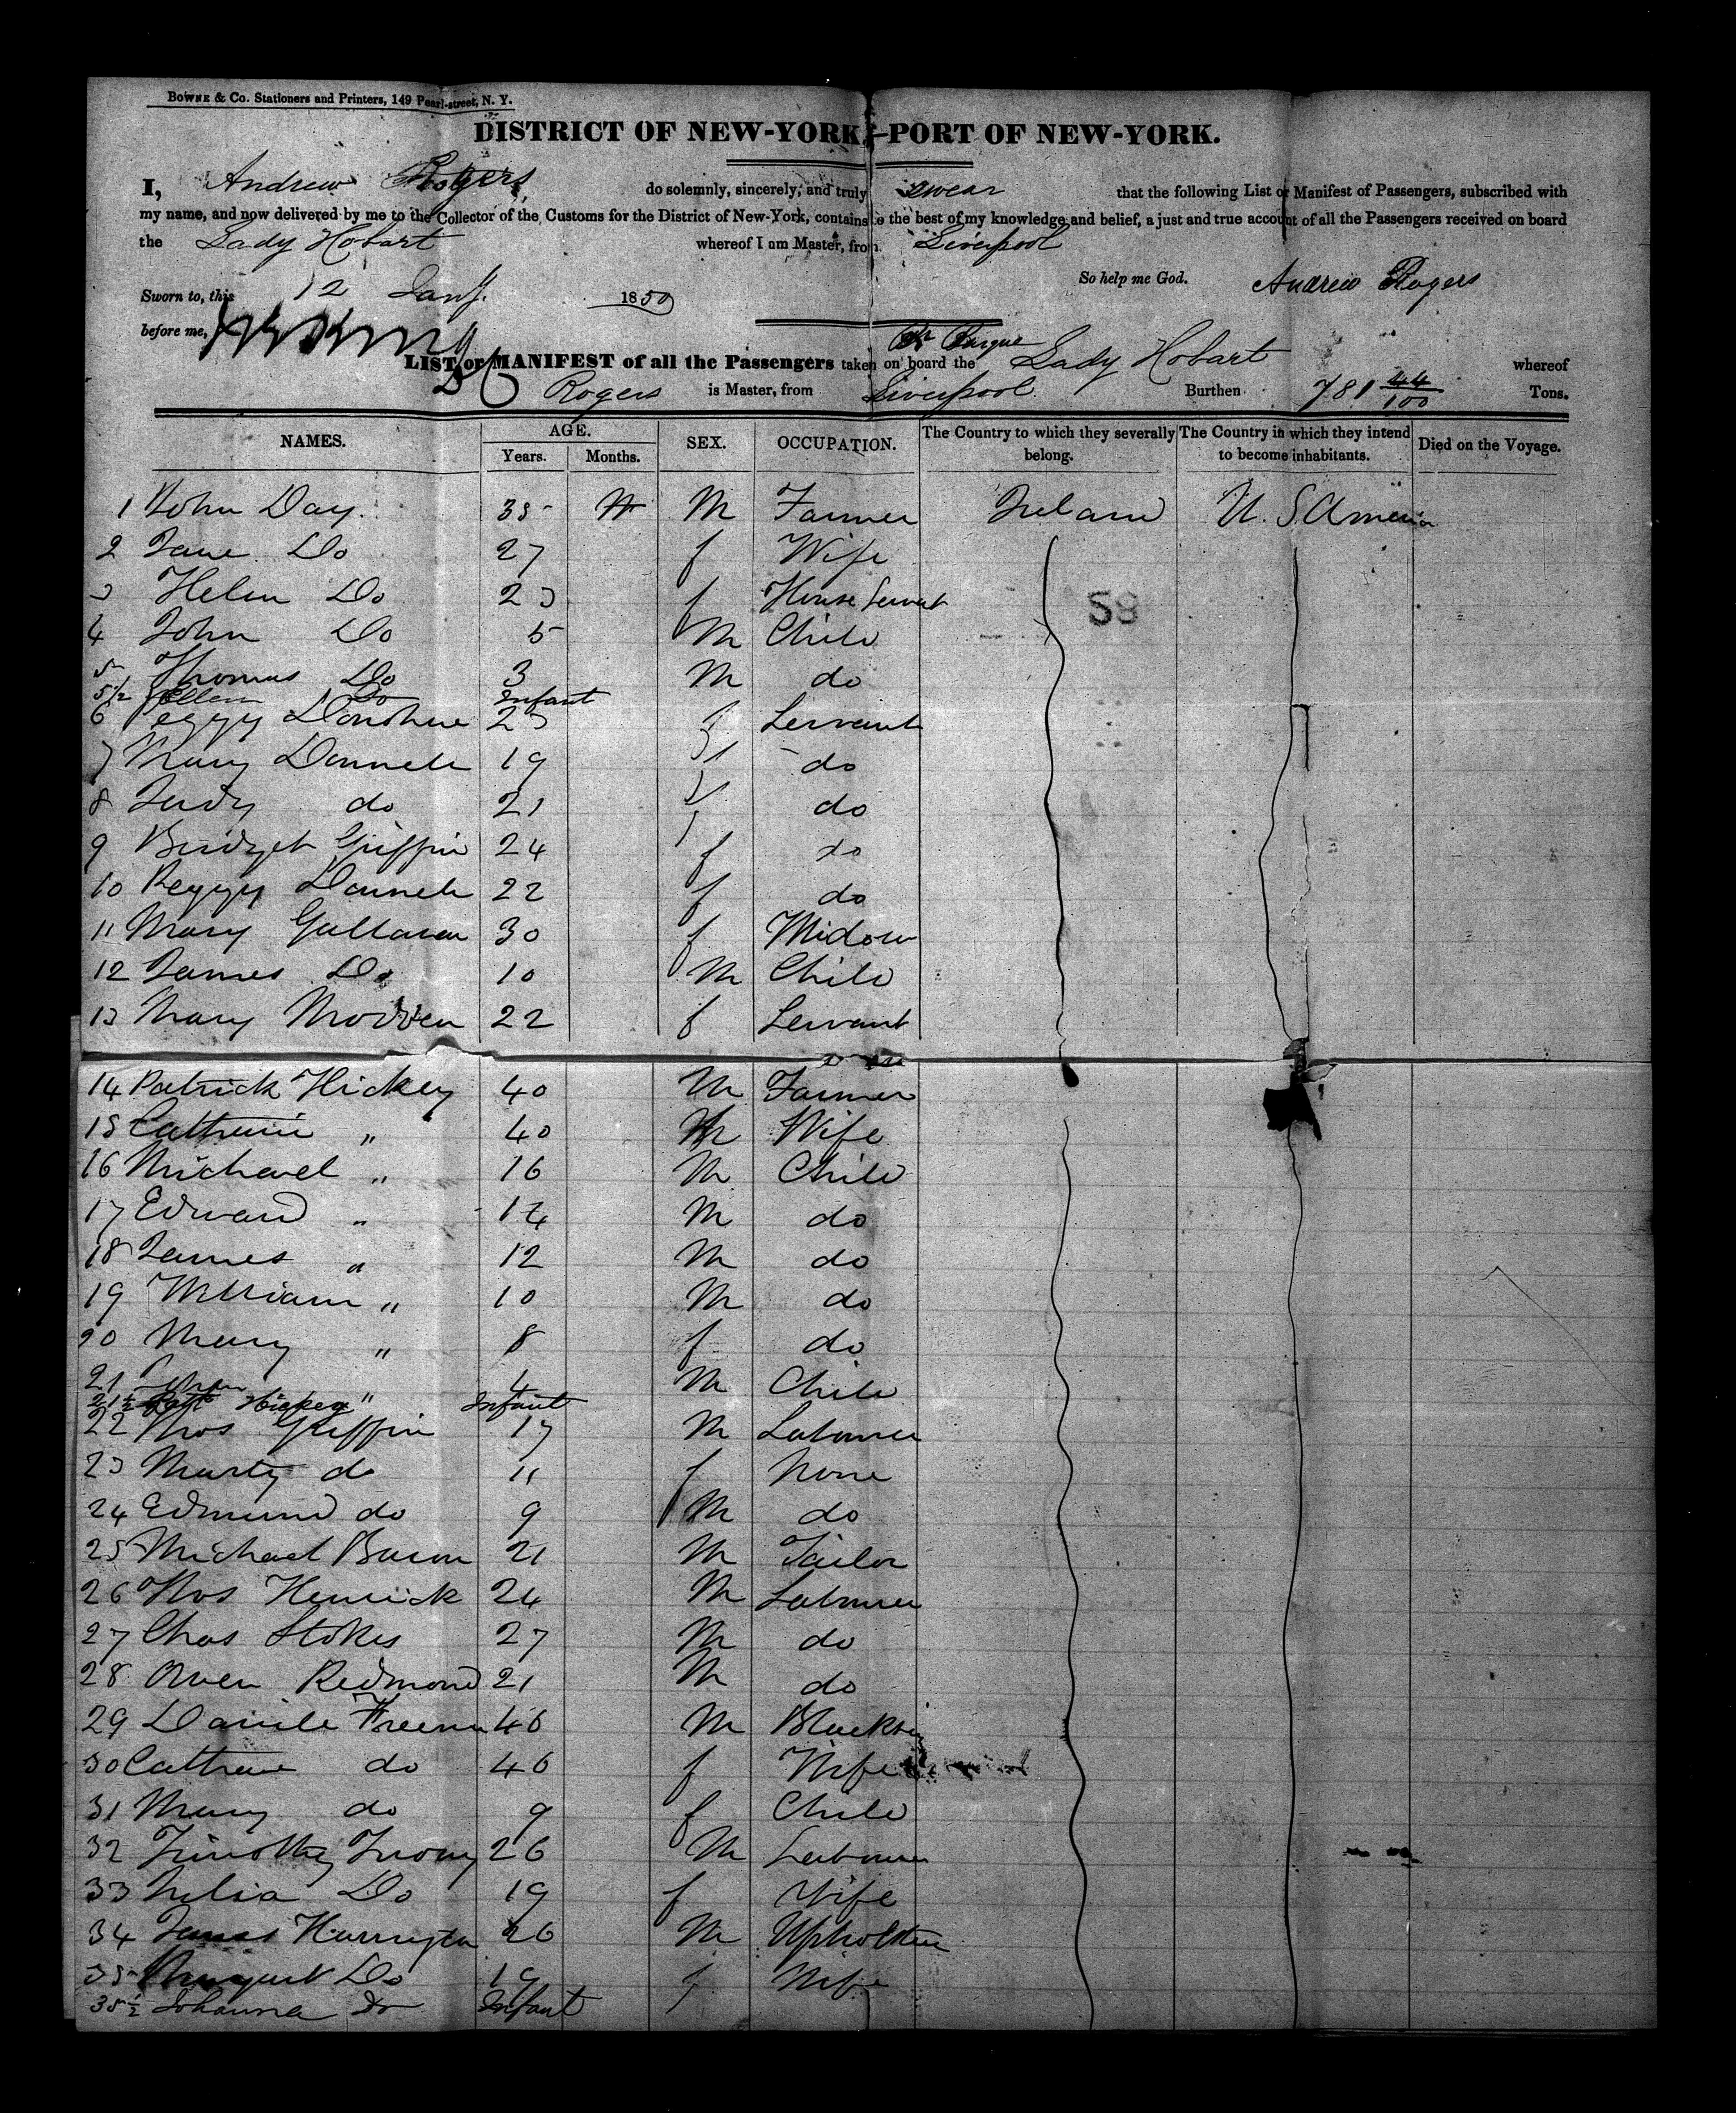 BOWNE & Co. Stationers and Printers, 149 Pearl-street, N. Y.
DISTRICT OF NEW-YORK,—PORT OF NEW-YORK.
I, Andrew Rogers, do solemnly, sincerely, and truly swear that the following List or Manifest of Passengers, subscribed with
my name, and now delivered by me to the Collector of the Customs for the District of New-York, contains to the best of my knowledge and belief, a just and true account of all the Passengers received on board
the Lady Hobart whereof I am Master, from Liverpool
So help me God. Andrew Rogers
Sworn to, this 12 Jany. 1850
before me,
LIST or MANIFEST of all the Passengers taken on board the Br Barque Lady Hobart whereof
Rogers is Master, from Liverpool Burthen 781 44/100 Tons.
NAMES. AGE. Years. Months. SEX. OCCUPATION. The Country to which they severally belong. The Country in which they intend to become inhabitants. Died on the Voyage.
1 John Day 35 M Farmer Ireland U. S America
2 Jane Do 27 f Wife
3 Helen Do 23 f House Servant
58
4 John Do 5 M Child
5 Thomas Do 3 M do
5 1/2 Ellen Do Infant
6 Peggy Donohue 23 f Servant
7 Mary Donnell 19 f do
8 Judy do 21 f do
9 Bridget Griffin 24 f do
10 Peggy Donnell 22 f do
11 Mary 30 f Widow
12 James Do 10 M Child
13 Mary Modden 22 f Servant
14 Patrick Hickey 40 M Farmer
15 Cathrine " 40 Wife
16 Michael " 16 M Child
17 Edward " 14 M do
18 James " 12 M do
19 William " 10 M do
20 Mary " 8 f do
21 " 4 M Child
21 1/2 Hickey " Infant
22 Thos Griffin 17 M Labourer
23 do 11 f None
24 Edmund do 9 M do
25 Michael Bacon 21 M Tailor
26 Thos 24 M Labourer
27 Chas Stokes 27 M do
28 Owen Redmond 21 M do
29 Daniel Freeman 46 M
30 Cathrine do 46 f Wife
31 Mary do 9 f Child
32 Timothy 26 M Labourer
33 Julia Do 19 f Wife
34 James Harrington 26 M Upholsterer
35 Margaret Do 19 f Wife
35 1/2 Johanna Do Infant